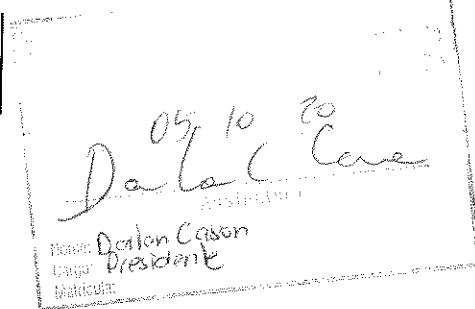 05 10 20
Assinatura
Nome: Darlan Cason
Cargo: Presidente
Matrícula: